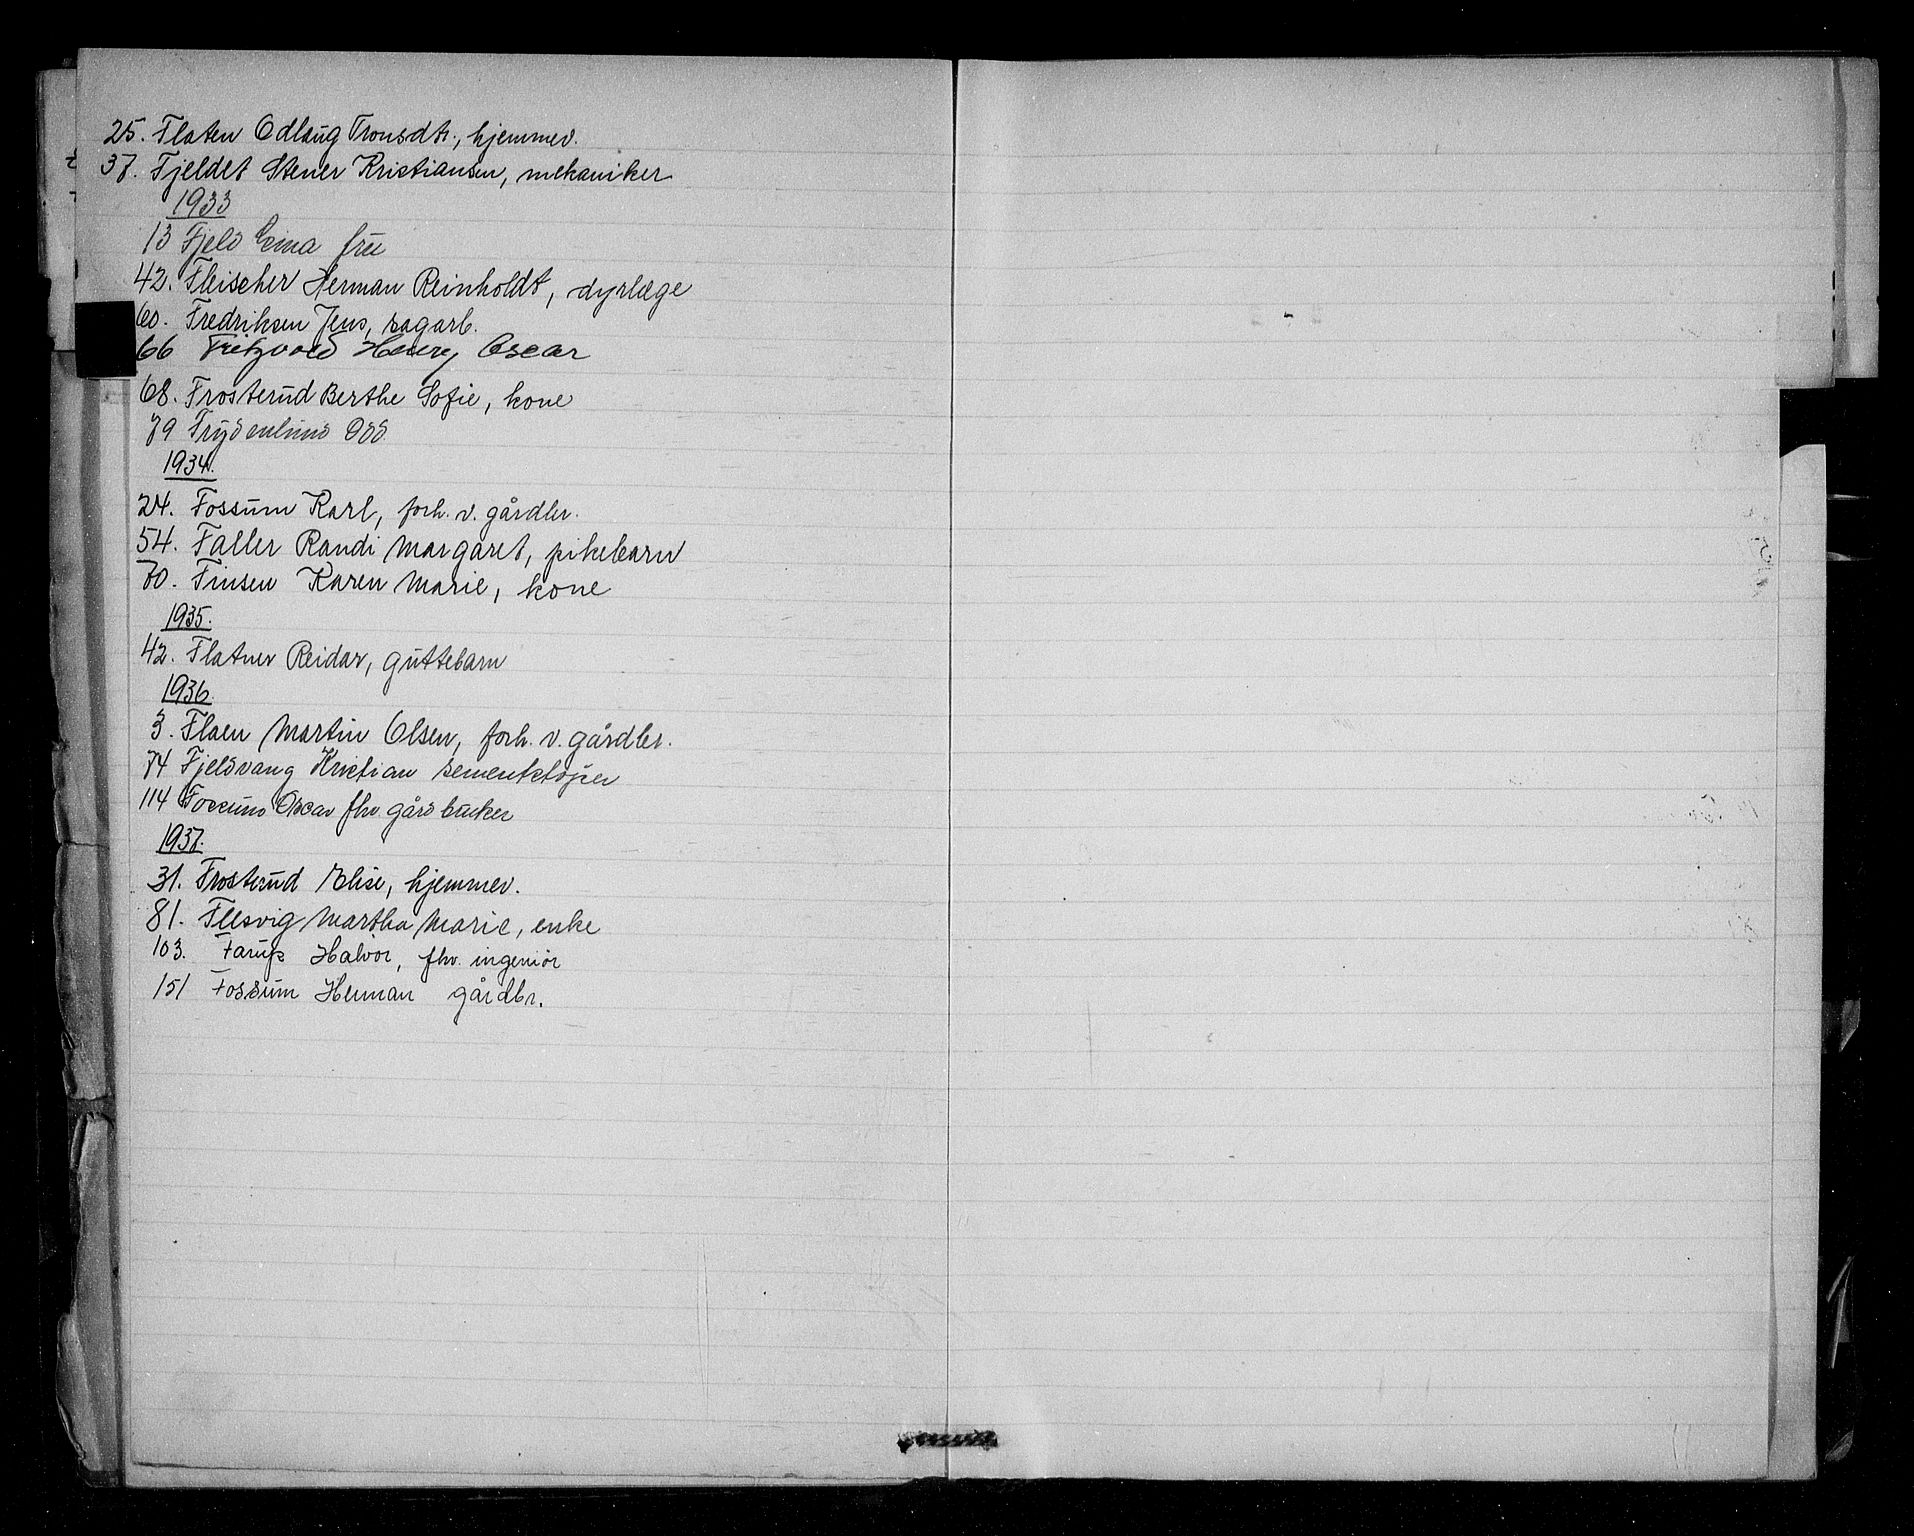 25. Flaten Odlaug Tronsdtr., hjemmev.
37. Fjeldet Stener Kristiansen, mekaniker
1933
13 Fjeld Gina frue
42. Fleischer Herman Reinholdt, dyrlæge
60. Fredriksen Jens, sagarb.
66 Fritzvold Henry Oscar
68. Frosterud Berthe Sofie, kone
79 Frydenlund Odd
1934.
24. Fossum Karl, forh. v. gårdbr.
54. Faller Randi Margaret, pikebarn
70. Finsen Karen Marie, kone
1935.
42. Flatner Reidar, guttebarn
1936.
3. Flaen Martin Olsen, forh. v. gårdbr.
74 Fjeldvang Kristian sementstøper
114 Fossum Oscar fhv. gårdbruker
1937.
31. Frosterud Elise, hjemmev.
81. Flesvig Martha Marie, enke
103. Farup Halvor, fhv. ingeniør
151 Fossum Herman gårdbr.